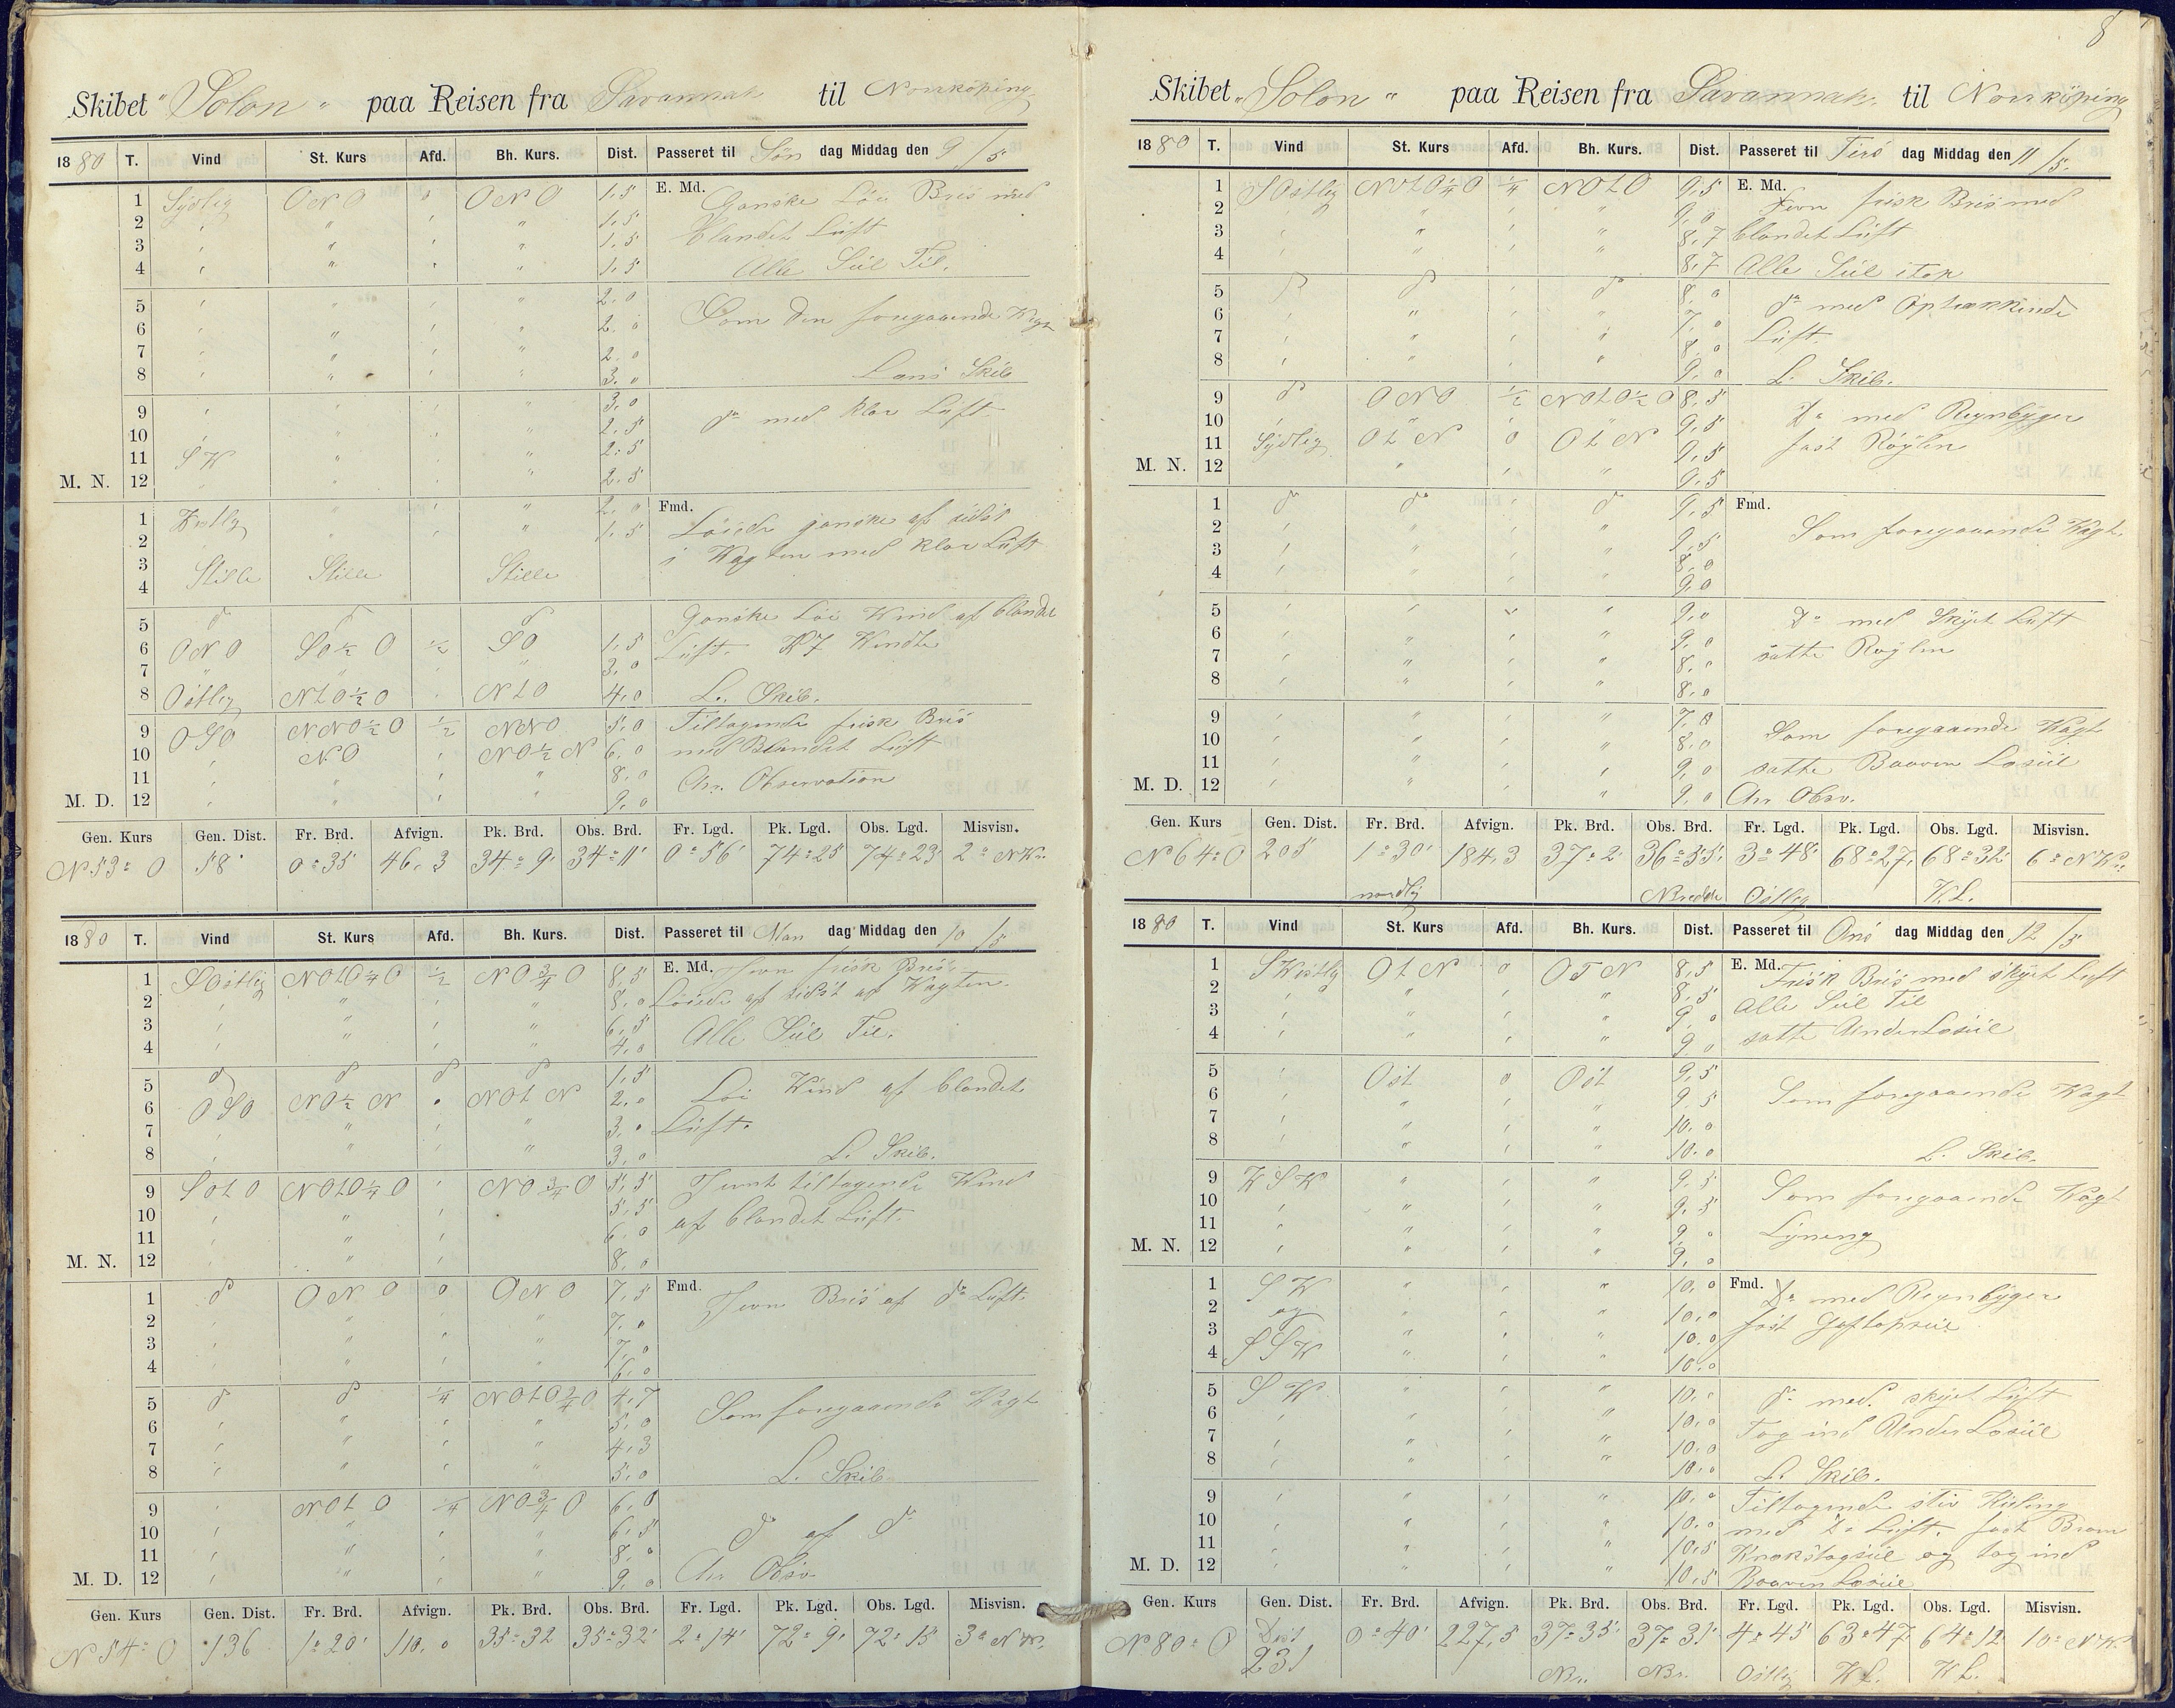 8
Skibet "Solon" paa Reisen fra Savannah til Norrköping
1880 T. Vind St. Kurs Afd. Bh. Kurs. Dist. Passeret til Søn dag Middag den 9/5
1 Sydlig ONO 0 ONO 1,5 E. Md. Ganske Löi Bris med
2 " " " " 1,5 blandet Luft
3 " " " " 1,5
4 " " " " 1,5 Alle Seil Til.
5 " " " " 2,0 Som den foregaaende Vagt
6 " " " " 2,0
7 " " " " 2,0
8 " " " " 3,0 Lens Skib
9 " " " " 3,0 do med klar Luft
10 " " " " 2,5
11 SW " " " 2,5
M. N. 12 " " " " 2,5
1 Vestlig " " " 2,0 Fmd. Löiede ganske af sidst
2 " " " " 1,5 i Vagten med klar Luft
3 Stille Stille Stille
4
5 do do do Ganske Löi Wind af blandet
6 ONO SO½O ½ SO 1,5 Luft. Kl 7 Wendte
7 " " " " 3,0
8 Ostlig NtO½O " NtO 4,0 L. Skib.
9 OSO NNO½O ½ NNO 5,0 Tiltagende frisk Bris
10 " NO " NO½N 6,0 med Blandet Luft
11 " " " " 8,0 Chr. Observation
M. D. 12 " " " " 9,0
Gen. Kurs Gen. Dist. Fr. Brd. Afvign. Pk. Brd. Obs. Brd. Fr. Lgd. Pk. Lgd. Obs. Lgd. Misvisn.
N53°O 58' 0°35' 46,3 34°9' 34°11' 0°56' 74°25 74°23' 2°NW.
1880 T. Vind St. Kurs Afd. Bh. Kurs. Dist. Passeret til Man dag Middag den 10/5
1 SOstlig NOtO¼O ½ NO¾O 8,5 E. Md. Jevn frisk Bris
2 " " " " 8,0 Löiede af sidst af Vagten.
3 " " " " 6,5
4 " " " " 4,0 Alle Seil Til.
5 do do do do 1,5 Löi Wind af blandet
6 OSO NO½N " NOtN 2,0
7 " " " " 3,0 Luft.
8 " " " " 3,0 L. Skib.
9 SOtO NOtO¼O " NO¾O 5,5 Jevnt tiltagende Wind
10 " " " 5,5 af blandet Luft.
11 " " " 6,0
M. N. 12 " " " 8,0
1 do ONO 0 ONO 7,5 Fmd. Jevn Bris af do Luft
2 " " " " 7,0
3 " " " " 7,0
4 " " " " 6,0
5 do do ¼ NOtO¾O 4,7 Som foregaaende Vagt
6 " " " " 5,0
7 " " " " 4,3
8 " " " " 5,0 L. Skib
9 " NOtO ¼ NO¾O 6,0
10 " " " " 6,5 do af do
11 " " " " 8,0
M. D. 12 " " " " 9,0 Chr Obsv
Gen. Kurs Gen. Dist. Fr. Brd. Afvign. Pk. Brd. Obs. Brd. Fr. Lgd. Pk. Lgd. Obs. Lgd. Misvisn.
N54°O 136 1°20' 110,0 35°32 35°32' 2°14' 72°9' 72°15' 3°NW.
Skibet "Solon" paa Reisen fra Savannah til Norrköping
1880 T. Vind St. Kurs Afd. Bh. Kurs. Dist. Passeret til Tirs dag Middag den 11/5.
1 SOstlig NOtO¼O ¼ NOtO 9,5 E. Md. Jevn frisk Bris med
2 " " " " 9,0
3 " " " " 8,7 blandet Luft
4 " " " " 8,7 Alle Seil i top
5 do do " do 8,0 do med Optrækkende
6 " " " " 7,0
7 " " " " 8,0 Luft.
8 " " " " 9,0 L. Skib.
9 do ONO ½ NOtO½O 8,5 Do med Regnbyger
10 " " " " 9,5
11 Sydlig OtN 0 OtN 9,5 fast Röylen
M. N. 12 " " " 9,5
1 do do " do 9,5 Fmd. Som foregaaende Vagt.
2 " " " " 9,5
3 " " " " 8,0
4 " " " " 9,0
5 " " " " 9,0 Do med Skyet Luft
6 " " " " 9,0
7 " " " " 8,0 satte Röylen
8 " " " " 8,0
9 " " " " 7,0 Som foregaaende Vagt
10 " " " " 8,0
11 " " " " 9,0 satte Boaven Læseil
M. D. 12 " " " " 9,0 Chr Obsv.
Gen. Kurs Gen. Dist. Fr. Brd. Afvign. Pk. Brd. Obs. Brd. Fr. Lgd. Pk. Lgd. Obs. Lgd. Misvisn.
N64°O 205' 1°30' 184,3 37°2' 36°55' 3°48' 68°27' 68°32' 6°NW.
nordlig NBredde Ostlig W.L.
1880 T. Vind St. Kurs Afd. Bh. Kurs. Dist. Passeret til Ons dag Middag den 12/5
1 SWestlig OtN 0 OTN 8,5 E. Md. Frisk Bris med skyet Luft
2 " " " " 8,5 Alle Seil Til
3 " " " " 9,0
4 " " " " 9,0 satte UnderLæseil
5 " Ost 0 Ost 9,5 Som foregaaende Vagt
6 " " " " 9,5
7 " " " " 10,0
8 " " " " 10,0 L. Skib.
9 WSW " " " 9,5 Som foregaaende Vagt
10 " " " " 9,5
11 " " " " 9,0 Lyneng
M. N. 12 " " " " 9,0
1 SW " " " 10,0 Fmd. Do med Regnbyger
2 og " " " 10,0 fast Gaftopseil
3 SSW " " " 10,0
4 " " " 10,0
5 SW " " " 10,0 do med skyet Luft
6 " " " " 10,0
7 " " " " 10,0 Tog ind Under Læseil
8 " " " " 10,0 L. Skib.
9 " " " " 10,0 Tiltagende stiv Kuling
10 " " " " 10,0 med Do Luft. fast Bram
11 " " " " 10,5 Knækstagseil og tog ind
M. D. 12 " " " " 10,5 Boaven Læseil
Gen. Kurs Gen. Dist. Fr. Brd. Afvign. Pk. Brd. Obs. Brd. Fr. Lgd. Pk. Lgd. Obs. Lgd. Misvisn.
N80°O Dist 231 0°40' 227,5 37°35' 37°31' 4°45' 63°47' 64°12' 10°NW
NBr. NBr. Ostlig WL. WL.